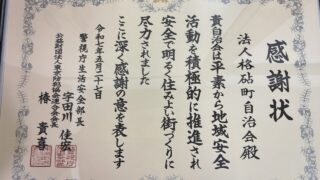 感謝状
法人格砧町自治会殿
貴自治会は平素から地域安全
活動を積極的に推進され
安全で明るく住みよい街づくりに
尽力されました
ここに深く感謝の意を表します
令和七年五月二十七日
警視庁生活安全部長
宇田川佳宏
公益財団法人東京防犯協会連合会会長
椿貴喜